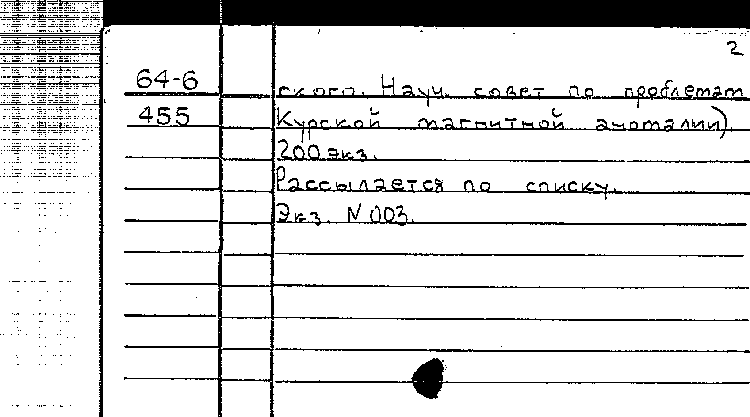 2
64-6 ского. Науч. совет по проблемам
455 Курской магнитной аномалии).
200 экз.
Рассылается по списку.
Экз. N 003.